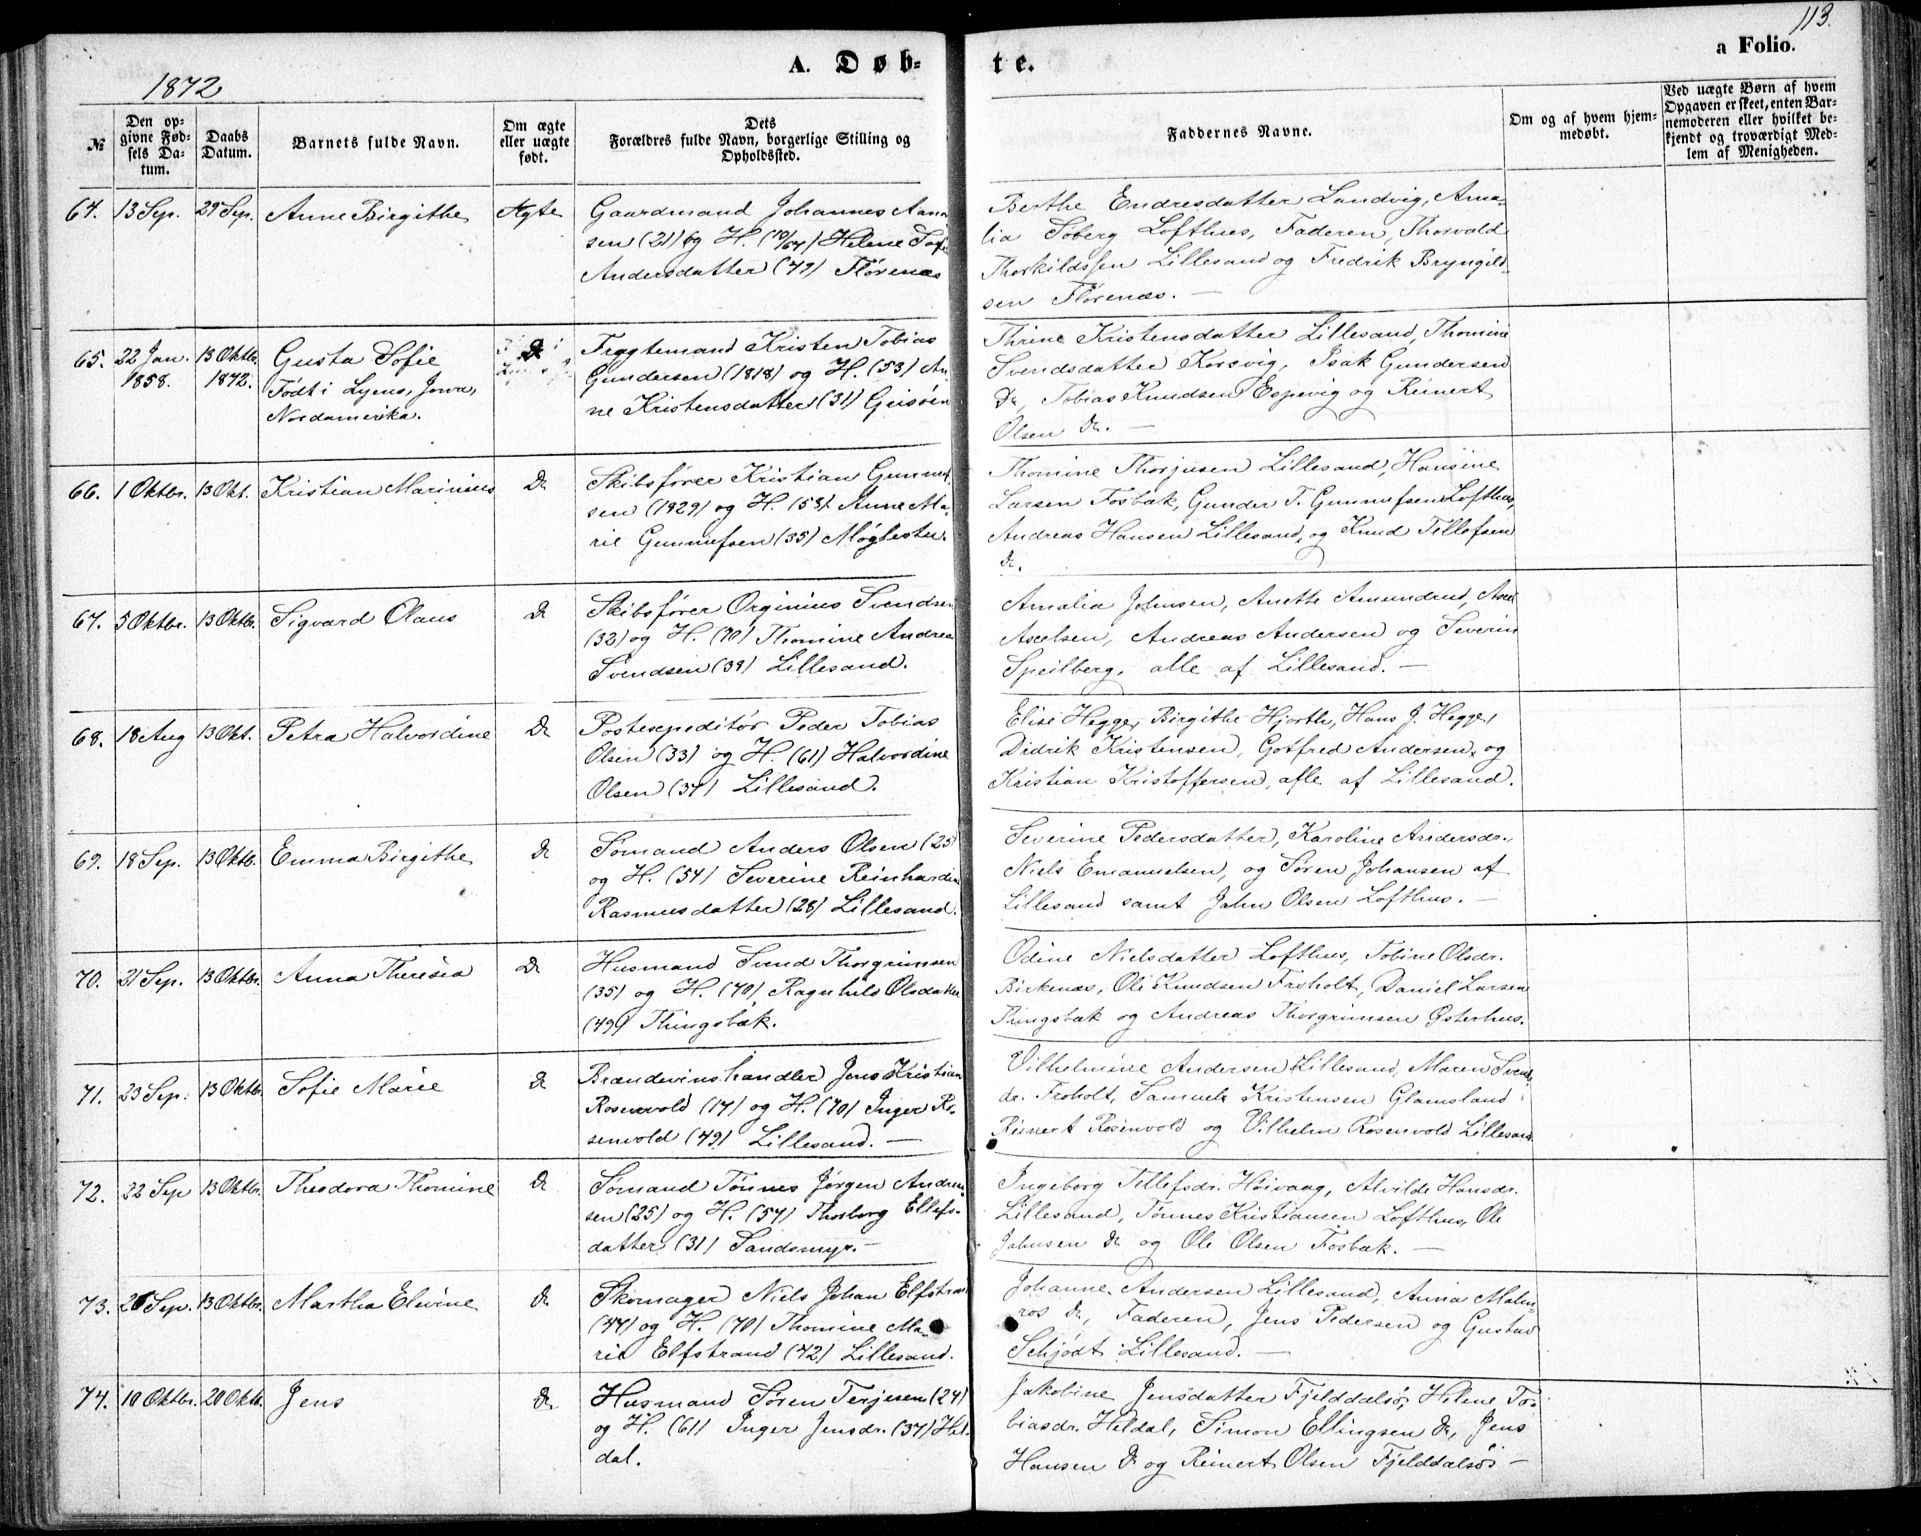 113.
1872
A. Døb-
te.
a Folio.
№
Den op-
givne Fød-
sels Da-
tum.
Daabs
Datum.
Barnets fulde Navn.
Om ægte
eller uægte
født.
Dets
Forældres fulde Navn, borgerlige Stilling og
Opholdssted.
Faddernes Navne.
Om og af hvem hjem-
medøbt.
Ved uægte Børn af hvem
Opgaven er skeet, enten Bar-
nemoderen eller hvilket be-
kjendt og troværdigt Med-
lem af Menigheden.
64. 13 Sep. 29 Sep. Anne Birgithe Ægte
Gaardmand Johannes
sen (21) og H. (10/64) Helene
Andersdatter (49) Flørenæs
Berthe Endresdatter Landvig, Ama-
lia Soberg Lofthus, Faderen, Thorvald
Thorkildssen Lillesand og Fredrik Bryngild-
sen Flørenæs. —
65. 22 Jan. 13 Oktbr. Gusta Sofie D
1858. 1872. Født i Lyons, Jowa,
Nordamerika.
Frygtemand Kristen Tobias
Gundersen (1818) og H. (53) An-
ne Kristensdatter (31) Grisøen
Thrine Kristensdatter Lillesand, Thomine
Svendsdatter Korsvig, Isak Gundersen
Do, Tobias Knudsen Espevig og Reinert
Olsen Do. —
66. 1 Oktbr. 13 Okt. Kristian Marinius Do
Skibsfører Kristian Gunnuf-
sen (1829) og H. (58) Anne Ma-
rie Gunnufsen (35) Møglestu.
Thomine Thorjusen Lillesand, Hansine
Larsen Fosbæk, Gunder T. Gunnufsen Lofthus,
Andreas Hansen Lillesand, og Knud Tellefsen
Do.
67. 5 Oktbr. 13 Oktbr. Sigvard Olaus Do
Skibsfører Orginius Svendsen
(32) og H. (70) Thomine Andrea
Svendsen (38) Lillesand.
Amalia Johnsen, Anette Amundrud, Axel
Axelsen, Andreas Andersen og Severin
Speilberg, alle af Lillesand. —
68. 18 Aug 13 Okt. Petra Halvordine Do
Postexpeditør Peder Tobias
Olsen (33) og H. (61) Halvordine
Olsen (34) Lillesand.
Elise Hegge, Birgithe Hjorth, Hans J. Hegge,
Didrik Kristensen, Gotfred Andersen, og
Kristian Kristoffersen, alle af Lillesand.
69. 18 Sep. 13 Oktb. Emma Birgithe Do
Sømand Anders Olsen (25)
og H. (54) Severine Reinhardine
Rasmusdatter (28) Lillesand.
Severine Pedersdatter, Karoline Andersdr.
Niels Emanuelsen, og Søren Johansen af
Lillesand samt Jahn Olsen Lofthus. —
70. 21 Sep. 13 Oktbr. Anna Theresia Do
Husmand Svend Thorgrimsen
(35) og H. (70) Ragnhild Olsdatter
(49) Thingsbæk.
Odine Nielsdatter Lofthus, Tobine Olsdr.
Birkenæs, Ole Knudsen Froholt, Daniel Larsen
Thingsbæk og Andreas Thorgrimsen Østerhus.
71. 23 Sep. 13 Oktbr. Sofie Marie Do
Brændevinshandler Jens Kristian
Rosenvold (17) og H. (70) Inger Ro-
senvold (49) Lillesand. —
Vilhelmine Andersen Lillesand, Maren Svends-
dr. Froholt, Samuele Kristensen Glamsland
Reinert Rosenvold og Vilhelm Rosenvold Lillesand
72. 22 Sep 13 Oktbr. Theodora Thomine Do
Sømand Tønnes Jørgen Andrea-
sen (25) og H. (54) Thorborg Ellefs-
datter (31) Sandsmyr. —
Ingeborg Tellefsdr. Høivaag, Alvilde Hansdr.
Lillesand, Tønnes Kristiansen Lofthus, Ole
Jahnsen Do og Ole Olsen Fosbæk. —
73. 26 Sep. 13 Oktbr. Martha Elvine Do
Skomager Niels Johan Elfstrand
(44) og H. (70) Thomine Ma-
rie Elfstrand (42) Lillesand.
Johanne Andersen Lillesand, Anna Malm-
ros Do, Faderen, Jens Pedersen og Gustav
Schjødt Lillesand. —
74. 10 Oktbr. 20 Oktb. Jens Do
Husmand Søren Terjesen (24)
og H. (61) Inger Jensdr. (37) Hel-
dal.
Jakobine Jensdatter Fjelddalsø, Helene To-
biasdr. Heldal, Simon Ellingsen Do, Jens
Hansen Do og Reinert Olsen Fjelddalsø —